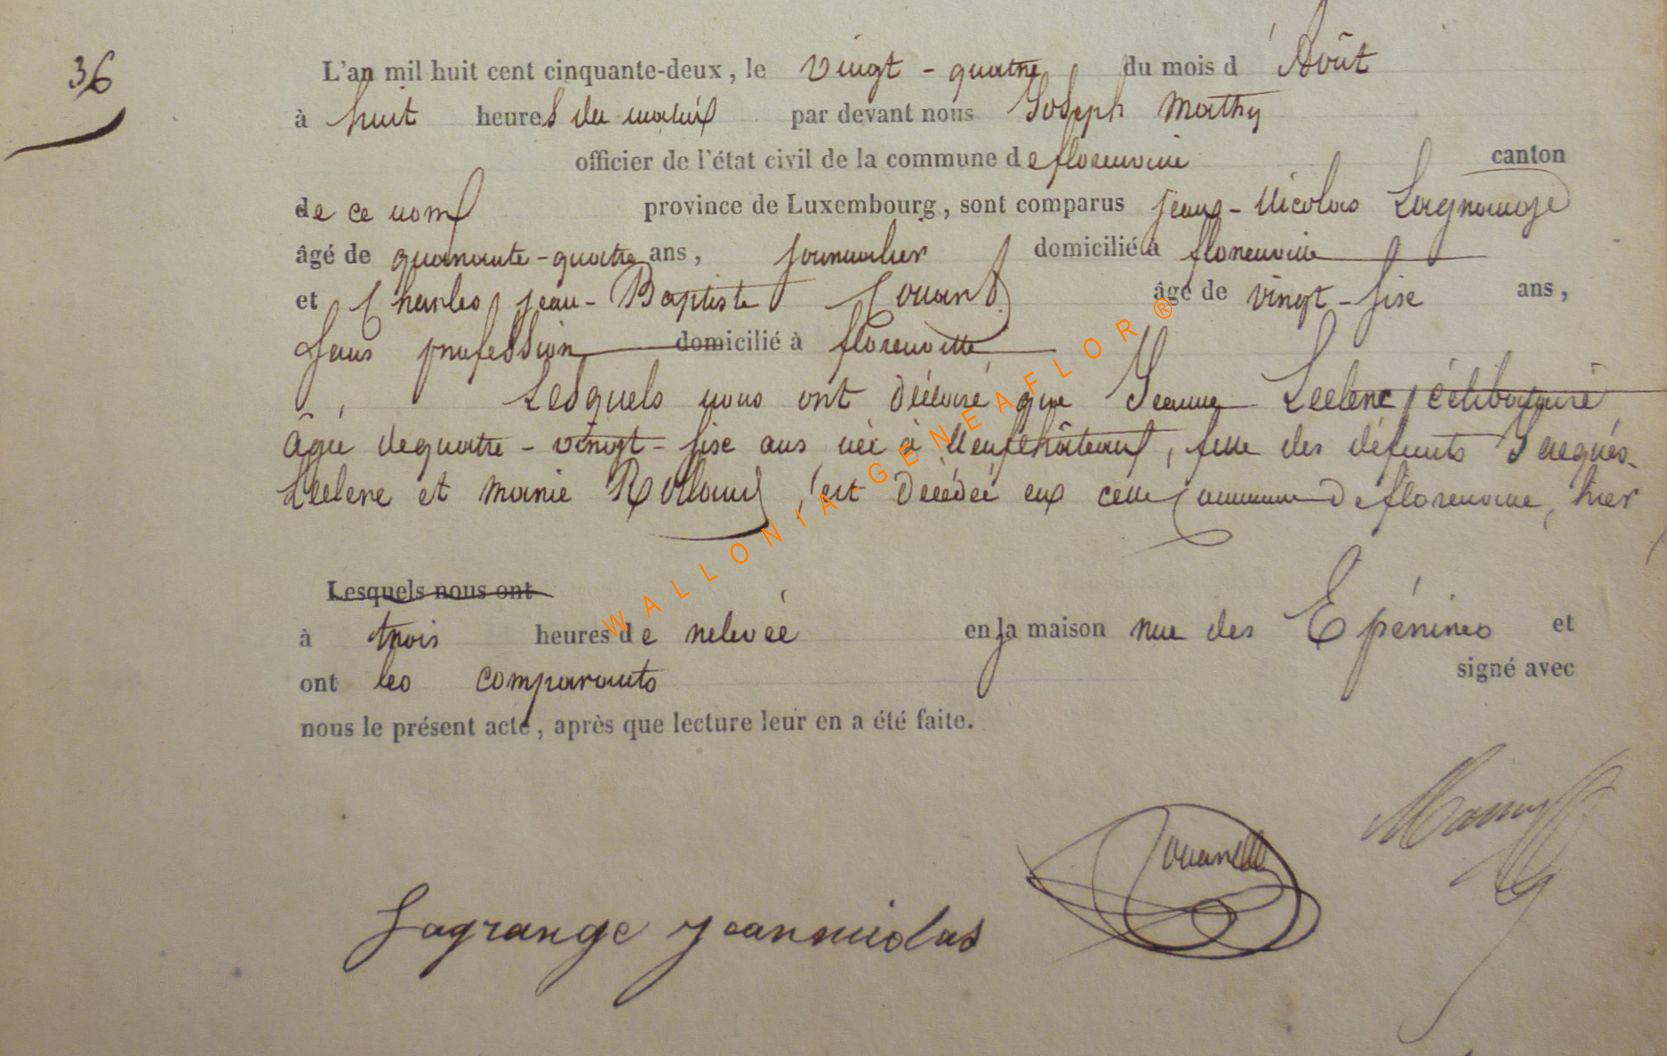 36
L'an mil huit cent cinquante-deux, le vingt-quatre du mois d'Août
à huit heures du matin par devant nous Joseph Mathy
officier de l'état civil de la commune de florenville canton
de ce nom province de Luxembourg, sont comparus jean-Nicolas Lagrange
âgé de quarante-quatre ans, journalier domicilié à florenville
et Charles jean-Baptiste âgé de vingt-six ans,
sans profession domicilié à florenville
Lesquels nous ont déclaré que Jeanne Leclerc, célibataire
âgée de quatre-vingt-six ans née à Neufchâteau, fille des défunts Jacques
Leclerc et marie Rolland, est décédée en cette commune de florenville, hier
Lesquels nous ont
à trois heures de relevée en la maison rue des Epénires et
ont les comparants signé avec
nous le présent acte, après que lecture leur en a été faite.
WALLONIA-GENEAFLOR®
Lagrange jeannicolas